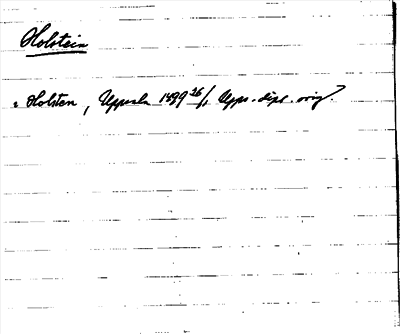 Holstein
i Holsten, Uppsala 1499 26/1 Upps. dipl. orig.